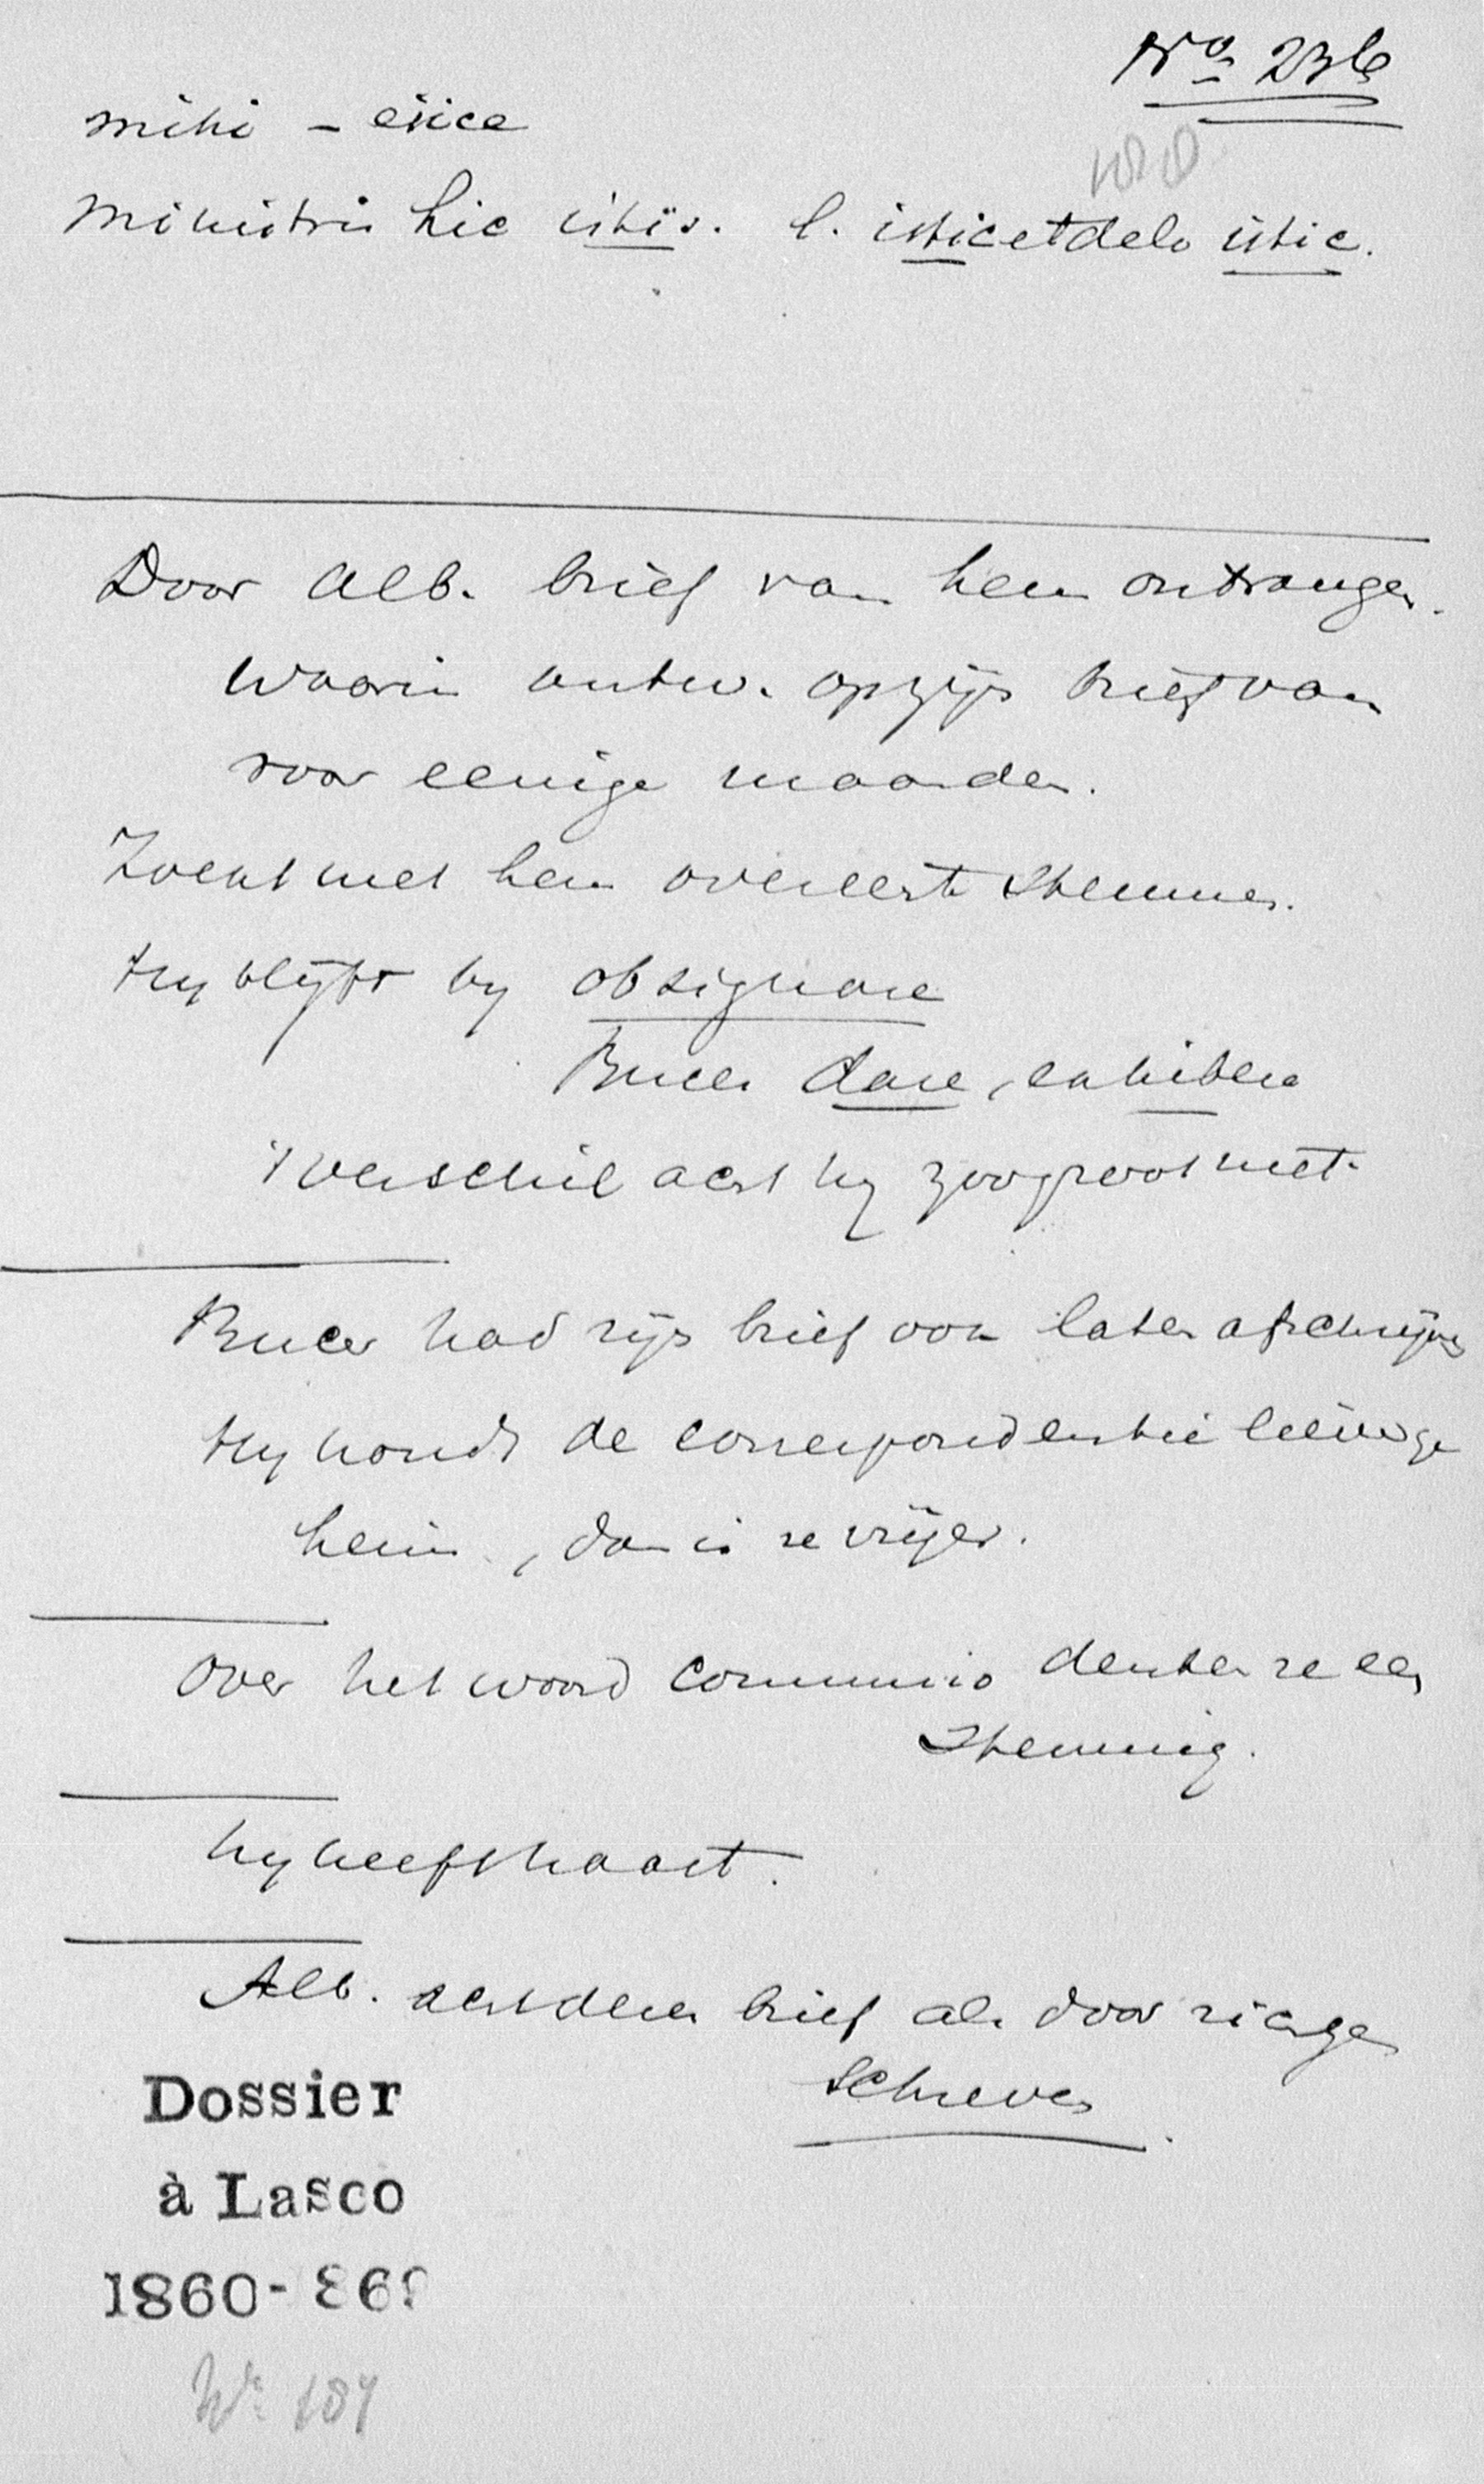 No 236
mihi – esice
Ministris hic istis. l. istic et dele istic.
Door Alb. brief van hem ontvangen.
Waarin antw. op zijn brief van
voor eenige maanden.
Zoekt met hem overeen te stemmen.
Hy blyft by obsignare
Bucer dare, exhibere
't verschil acht hy zoo groot niet.
Bucer had zijn brief von laten afschrijven
Hy houdt de correspondentie liever ge
heim, dan is ze vrijer.
Over het woord communio denken ze een
stemmig.
hy heeft haast.
Alb. acht dezen brief als door zich ge
schreven.
Dossier
à Lasco
1860-
No 187